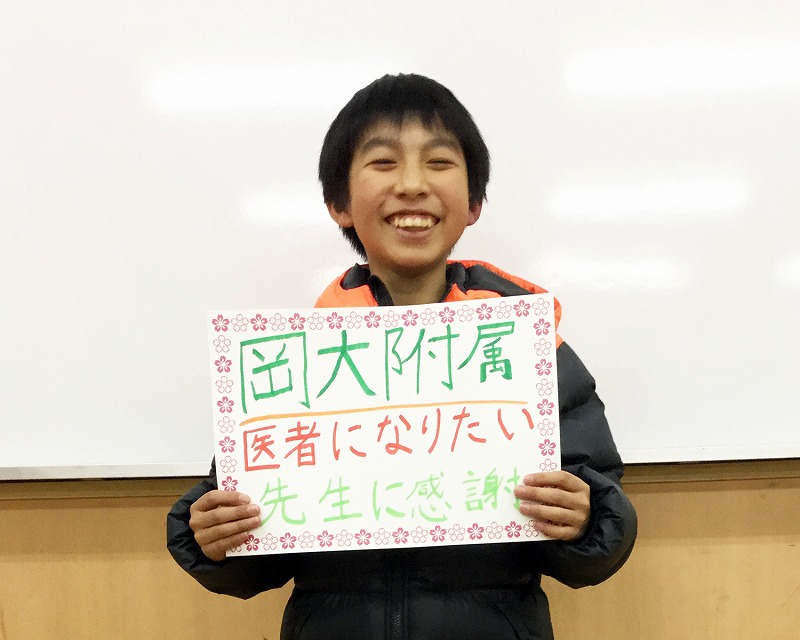 岡大附属
医者になりたい
先生に感謝